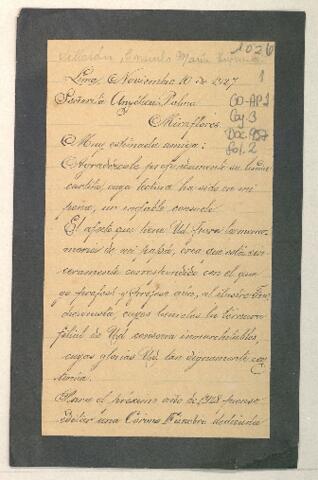 1026
1
Lima, Noviembre 10 de 1927
Señorita Angélica Palma
Miraflores
GO-AP1
Caj. 3
Doc. 957
Fol. 2
Muy estimada amiga:
Agradézcole profundamente su
cartita, cuya lectura ha sido en mi
pena, un inefable consuelo
El afecto que tiene Ud. para la
de mi papá, crea que está sin
ceramente correspondido con el que
yo profesé y profeso aún, al ilustre Tra
dicionista, cuyos laureles la ternura
filial de Ud. conserva inmarchitables,
cuyas glorias Ud. tan dignamente con
tinúa.
Para el próximo año de 1928 pienso
editar una Corona Fúnebre dedicada